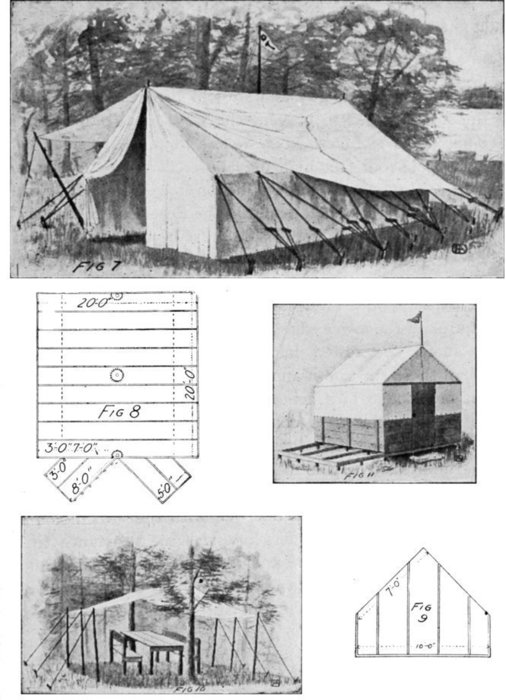 FIG 7
20'-0"
20'-0"
FIG 8
3'-0" 7'-0"
3'-0"
8'-0"
5'-0"
FIG 11
FIG 10
7'-0"
FIG
9
10'-0"